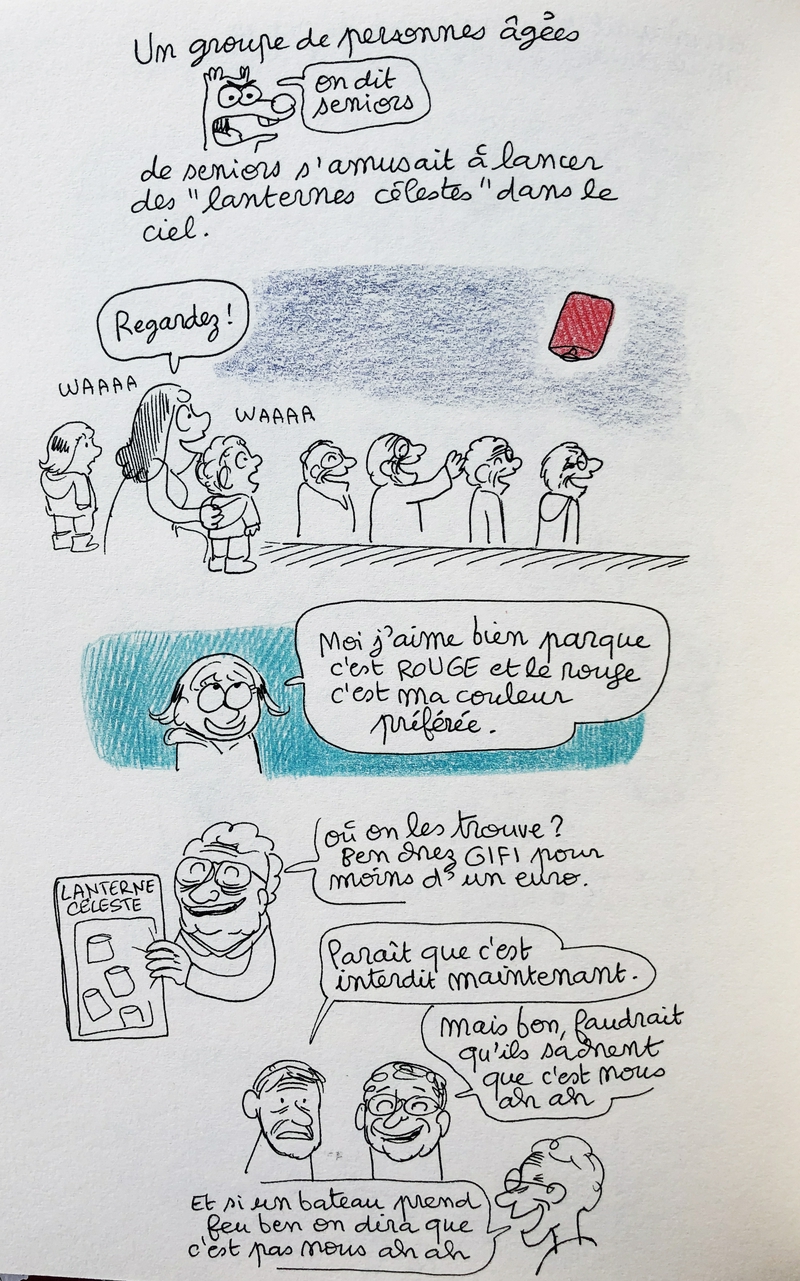 Un groupe de personnes âgées
on dit
seniors
de seniors s'amusait à lancer
des "lanternes célestes" dans le
ciel.
Regardez !
WAAAA
WAAAA
Moi j'aime bien parque
c'est ROUGE et le rouge
c'est ma couleur
préférée.
où on les trouve ?
Ben chez GIFI pour
moins d'un euro.
LANTERNE
CÉLESTE
Paraît que c'est
interdit maintenant.
Mais bon, faudrait
qu'ils sachent
que c'est nous
ah ah
Et si un bateau prend
feu ben on dira que
c'est pas nous ah ah